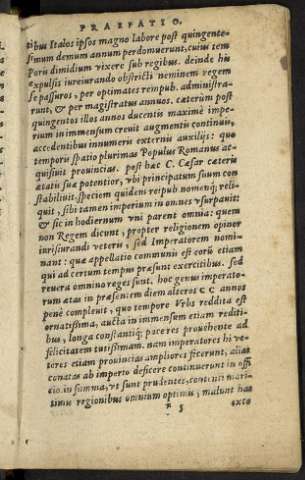 PRAEFATIO.
tibus Italos ipsos magno labore post quingente-
simum demum annum perdomuerunt, cuius tem
poris dimidium vixere sub regibus. deinde his
expulsis iureiurando obstricti neminem regem
se passuros, per optimates rempub. administra-
runt, & per magistratus annuos. cæterùm post
quingentos illos annos ducentis maximè impe-
rium in immensum crevit augmentis continuis,
accedentibus innumeris externis auxilijs: quo
temporis spatio plurimas Populus Romanus ac-
quisiuit prouincias. post hæc C. Cæsar cæteris
ætatis suæ potentior, vbi principatum suum con
stabiliuit, speciem quidem reipub nomenq́; reli-
quit, sibi tamen imperium in omnes vsurpauit
& sic in hodiernum vni parent omnia: quem
non Regem dicunt, propter religionem opinor
iurisiurandi veteris, sed Imperatorem nomi
nant: quæ appellatio communis est eorũ etiam
qui ad certum tempus præsunt exercitibus. sed
reuera omnino reges sunt. hoc genus imperato-
rum ætas in præsentem diem alteros CC annos
penè compleuit, quo tempore Vrbs reddita est
ornatissima, aucta in immensum etiam rediti-
bus, longa constantiq́; pace res prouehente ad
felicitatem tutissimam. nam imperatores hi ve-
teres etiam prouincias ampliores fecerunt, alias
conatas ab imperio deficere continuerunt in offi
cio. in summa, vt sunt prudentes, contenti mari-
timis regionibus omnium optimis, malunt has
5